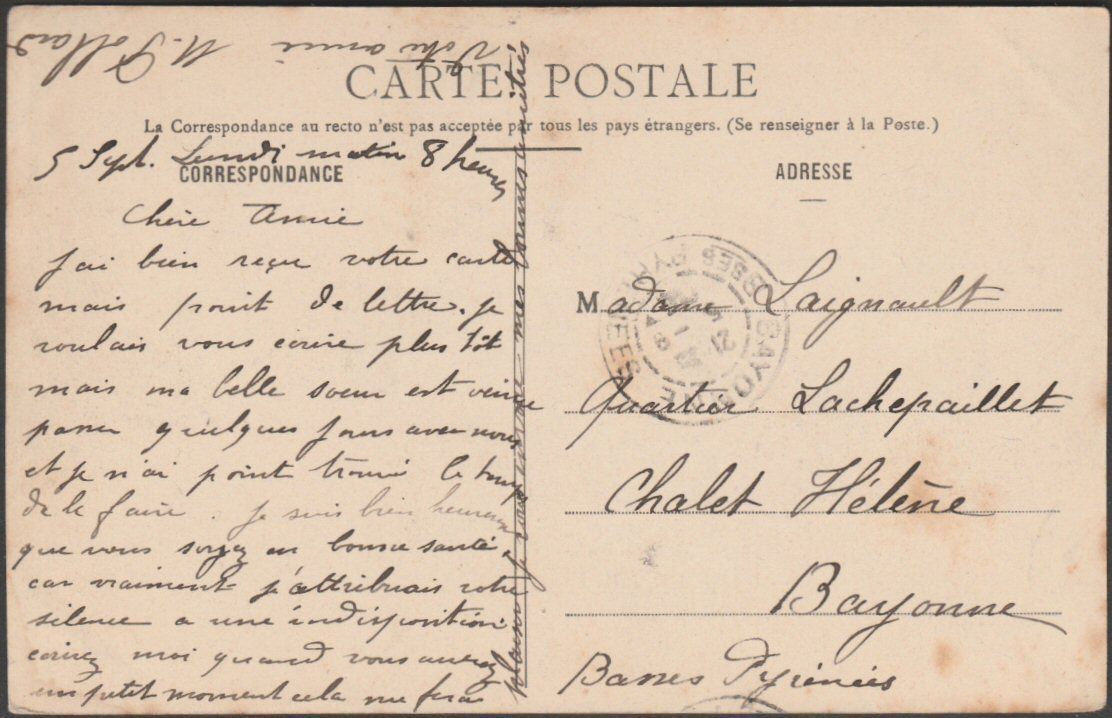 CARTE POSTALE
La Correspondance au recto n'est pas acceptée par tous les pays étrangers. (Se renseigner à la Poste.)
CORRESPONDANCE
5 Sept. Lundi matin 8 heures
Chère Amie
J'ai bien reçu votre carte
mais point de lettre. je
voulais vous écrire plus tôt
mais ma belle soeur est venue
passer quelques jours avec nous
et je n'ai point trouvé le temps
de le faire. Je suis bien heureuse
que vous soyez en bonne santé,
car vraiment j'attribuais votre
silence a une indisposition
écrivez moi quand vous aurez
un petit moment cela me fera
plaisir je vous envoie mes bonnes amitiés
Votre amie
M. Pollard
ADRESSE
Madame Laignault
Quartier Lachepaillet
Chalet Hélène
Bayonne
Basses Pyrénées
BAYONNE
BSES PYRENEES